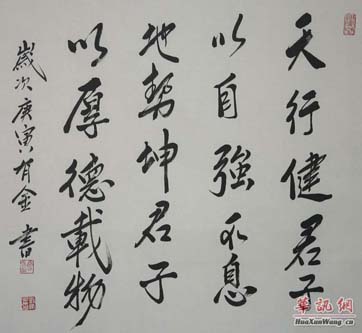 天行健君子
以自強不息
地勢坤君子
以厚德載物
歲次庚寅有金書
華訊網
HuaXunWang.cn